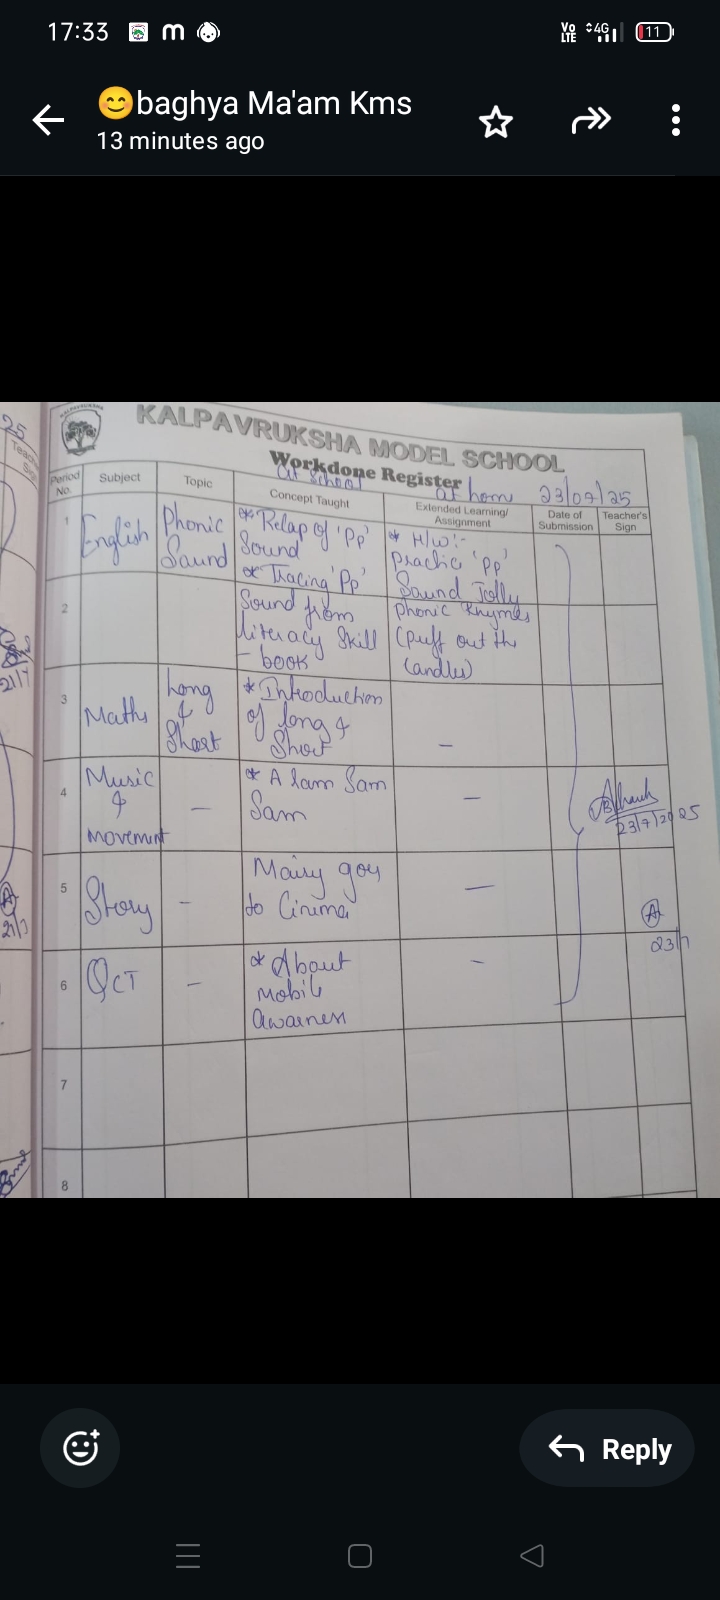 17:33
m
Vo
LTE
4G
11
😊baghya Ma'am Kms
13 minutes ago
KALPAVRUKSHA MODEL SCHOOL
Workdone Register
At School
at home 23/07/25
Period No.
Subject
Topic
Concept Taught
Extended Learning/
Assignment
Date of
Submission
Teacher's
Sign
1
English
Phonic
Saund
* Relap of 'Pp'
Sound
* Tracing 'Pp'
Sound from
literacy Skill
- book
* H/W:-
Practic 'Pp'
Saund Jolly
Phonic Rhymes
(puff out the
Candles)
2
3
Maths
Long
&
Short
* Introduction
of long &
Short
-
4
Music
&
movement
-
* A Sam Sam
Sam
-
23/7/2025
5
Story
-
Maisy goy
to Cinema
-
A
23/7
6
QCT
-
* About
mobile
awarness
-
7
8
25
21/7
A
21/7
Reply